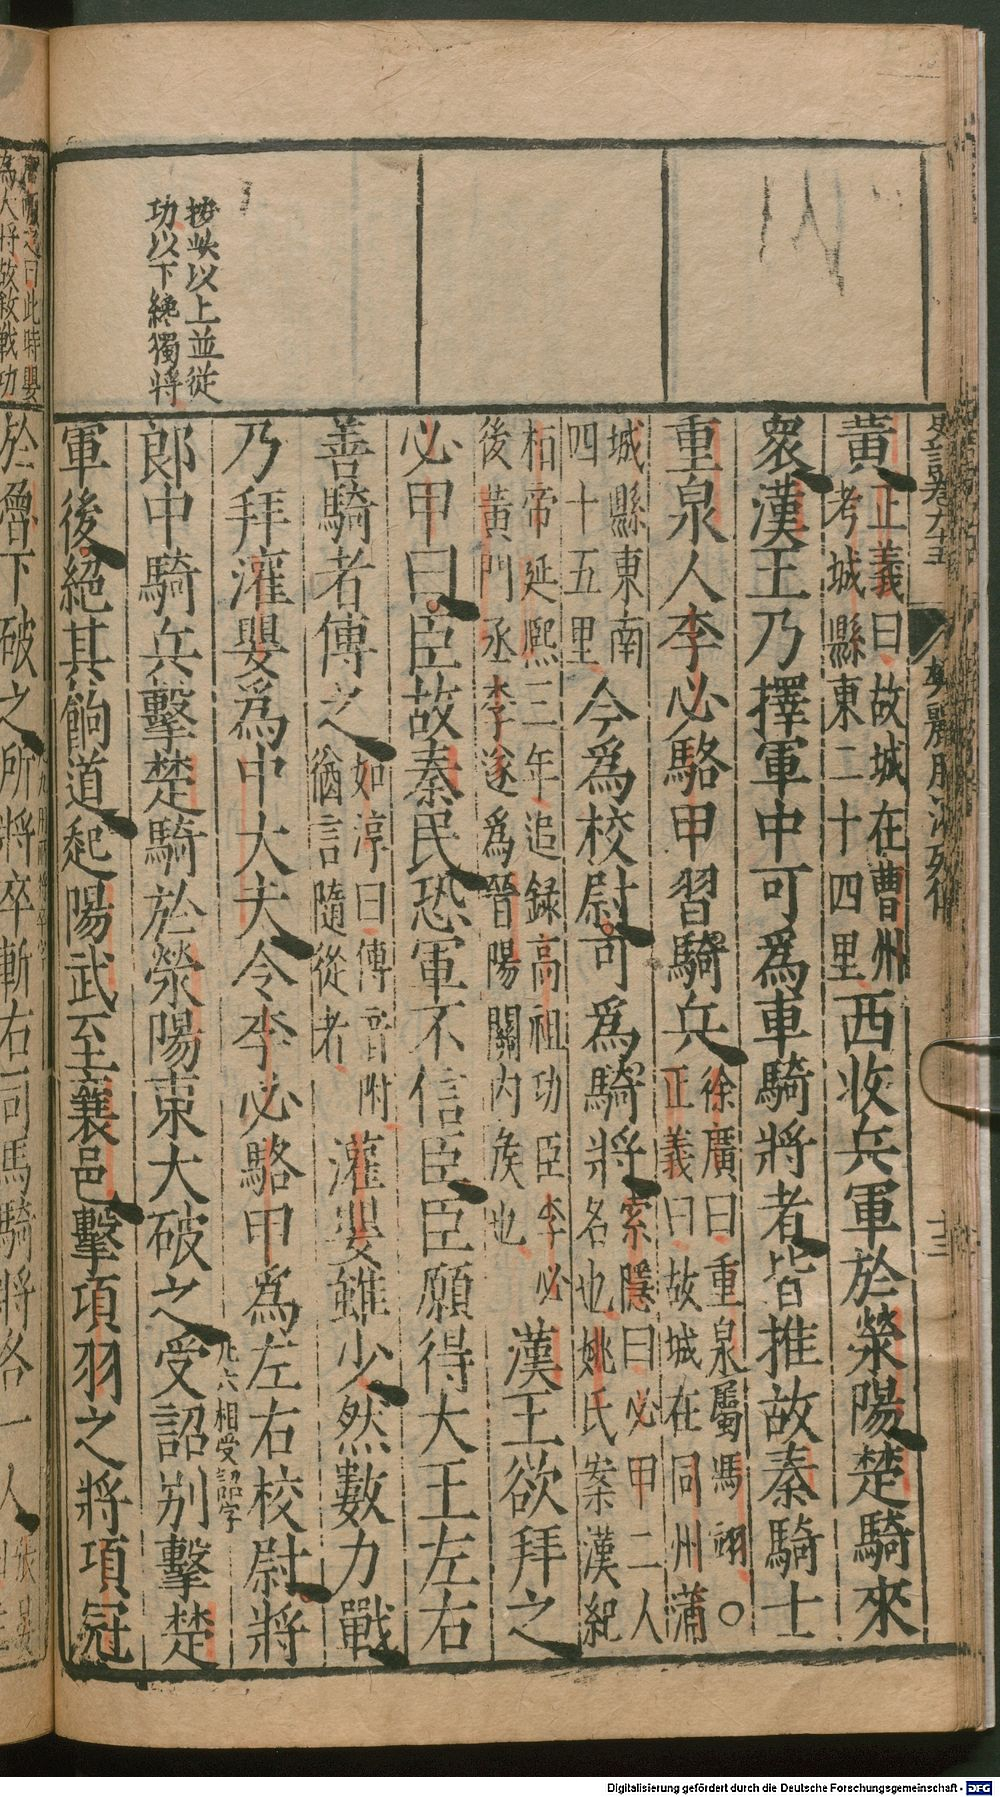 史記卷九十五
樊酈滕灌列傳
十三
黃正義曰故城在曹州
考城縣東二十四里西收兵軍於滎陽楚騎來
衆漢王乃擇軍中可爲車騎將者皆推故秦騎士
重泉人李必駱甲習騎兵徐廣曰重泉屬馮翊○
正義曰故城在同州蒲
城縣東南
四十五里今爲校尉可爲騎將索隱曰必甲二人
名也姚氏案漢紀
桓帝延熙三年追録高祖功臣李必
後黃門丞李遂爲晉陽關内矦也漢王欲拜之
必甲曰臣故秦民恐軍不信臣臣願得大王左右
善騎者傅之如淳曰傅音附
猶言隨從者灌嬰雖少然數力戰
乃拜灌嬰爲中大夫令李必駱甲爲左右校尉將
郎中騎兵擊楚騎於滎陽東大破之受詔别擊楚
凡六相受詔字
軍後絕其餉道起陽武至襄邑擊項羽之將項冠
按此以上並從
功以下纔獨將
於魯下破之所將卒斬右司馬騎將各一人
Digitalisierung gefördert durch die Deutsche Forschungsgemeinschaft - DFG